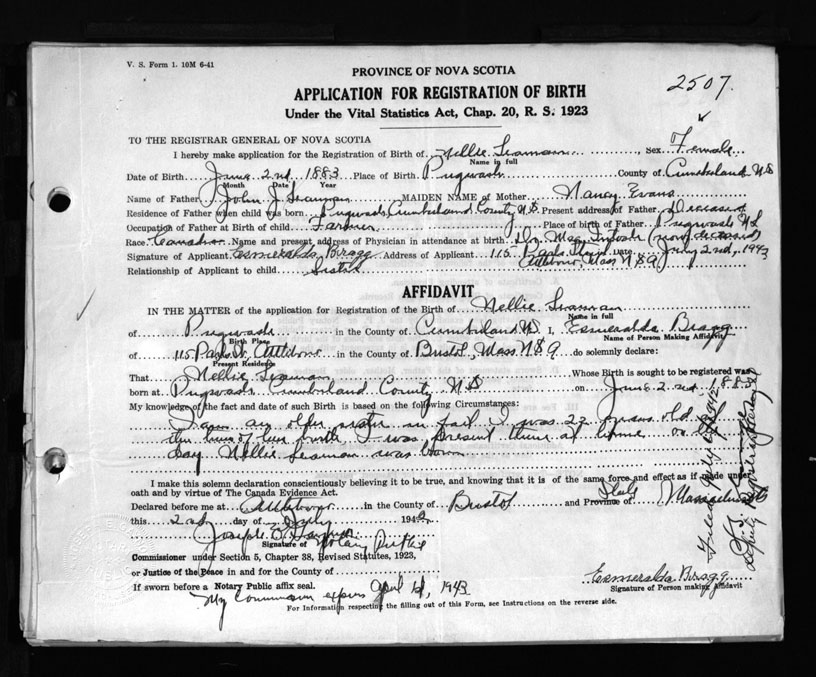 V. S. Form 1. 10M 6-41
2507.
PROVINCE OF NOVA SCOTIA
APPLICATION FOR REGISTRATION OF BIRTH
Under the Vital Statistics Act, Chap. 20, R. S. 1923
TO THE REGISTRAR GENERAL OF NOVA SCOTIA
I hereby make application for the Registration of Birth of Nellie Seaman, Sex Female
Name in full
Date of Birth June 2nd 1883 Place of Birth Pugwash County of Cumberland N S
Month Date Year
Name of Father John J. Seaman MAIDEN NAME of Mother Nancy Evans
Residence of Father when child was born Pugwash Cumberland County N S Present address of Father Deceased
Occupation of Father at Birth of child Farmer Place of birth of Father Pugwash N S
Race Canadian Name and present address of Physician in attendance at birth Dr. Mac Intosh (now deceased)
Signature of Applicant Esmeralda Bragg Address of Applicant 115 Date July 2nd, 194
Attleboro, Mass U S A
Relationship of Applicant to child Sister
AFFIDAVIT
IN THE MATTER of the application for Registration of the Birth of Nellie Seaman
Name in full
of Pugwash in the County of Cumberland N S I, Esmeralda Bragg
Birth Place Name of Person Making Affidavit
of 115 St. Attleboro in the County of Bristol, Mass U S A do solemnly declare:
Present Residence
That Nellie Seaman Whose Birth is sought to be registered was
born at Pugwash Cumberland County N S on June 2nd 1883
My knowledge of the fact and date of such Birth is based on the following Circumstances:
I am an older sister in fact I was 22 years old at
the time of her birth. I was present there at home on the
day Nellie Seaman was born
I make this solemn declaration conscientiously believing it to be true, and knowing that it is of the same force and effect as if made under
oath and by virtue of The Canada Evidence Act.
Declared before me at Attleboro in the County of Bristol and Province of State Massachusetts
this 2nd day of July 1942
Joseph
Signature of Notary Public
Commissioner under Section 5, Chapter 38, Revised Statutes, 1923,
or Justice of the Peace in and for the County of
If sworn before a Notary Public affix seal.
Esmeralda Bragg
Signature of Person making Affidavit
My Commission expires April 1943
For Information respecting the filling out of this Form, see Instructions on the reverse side.
Filed July 1942
Deputy Registrar General